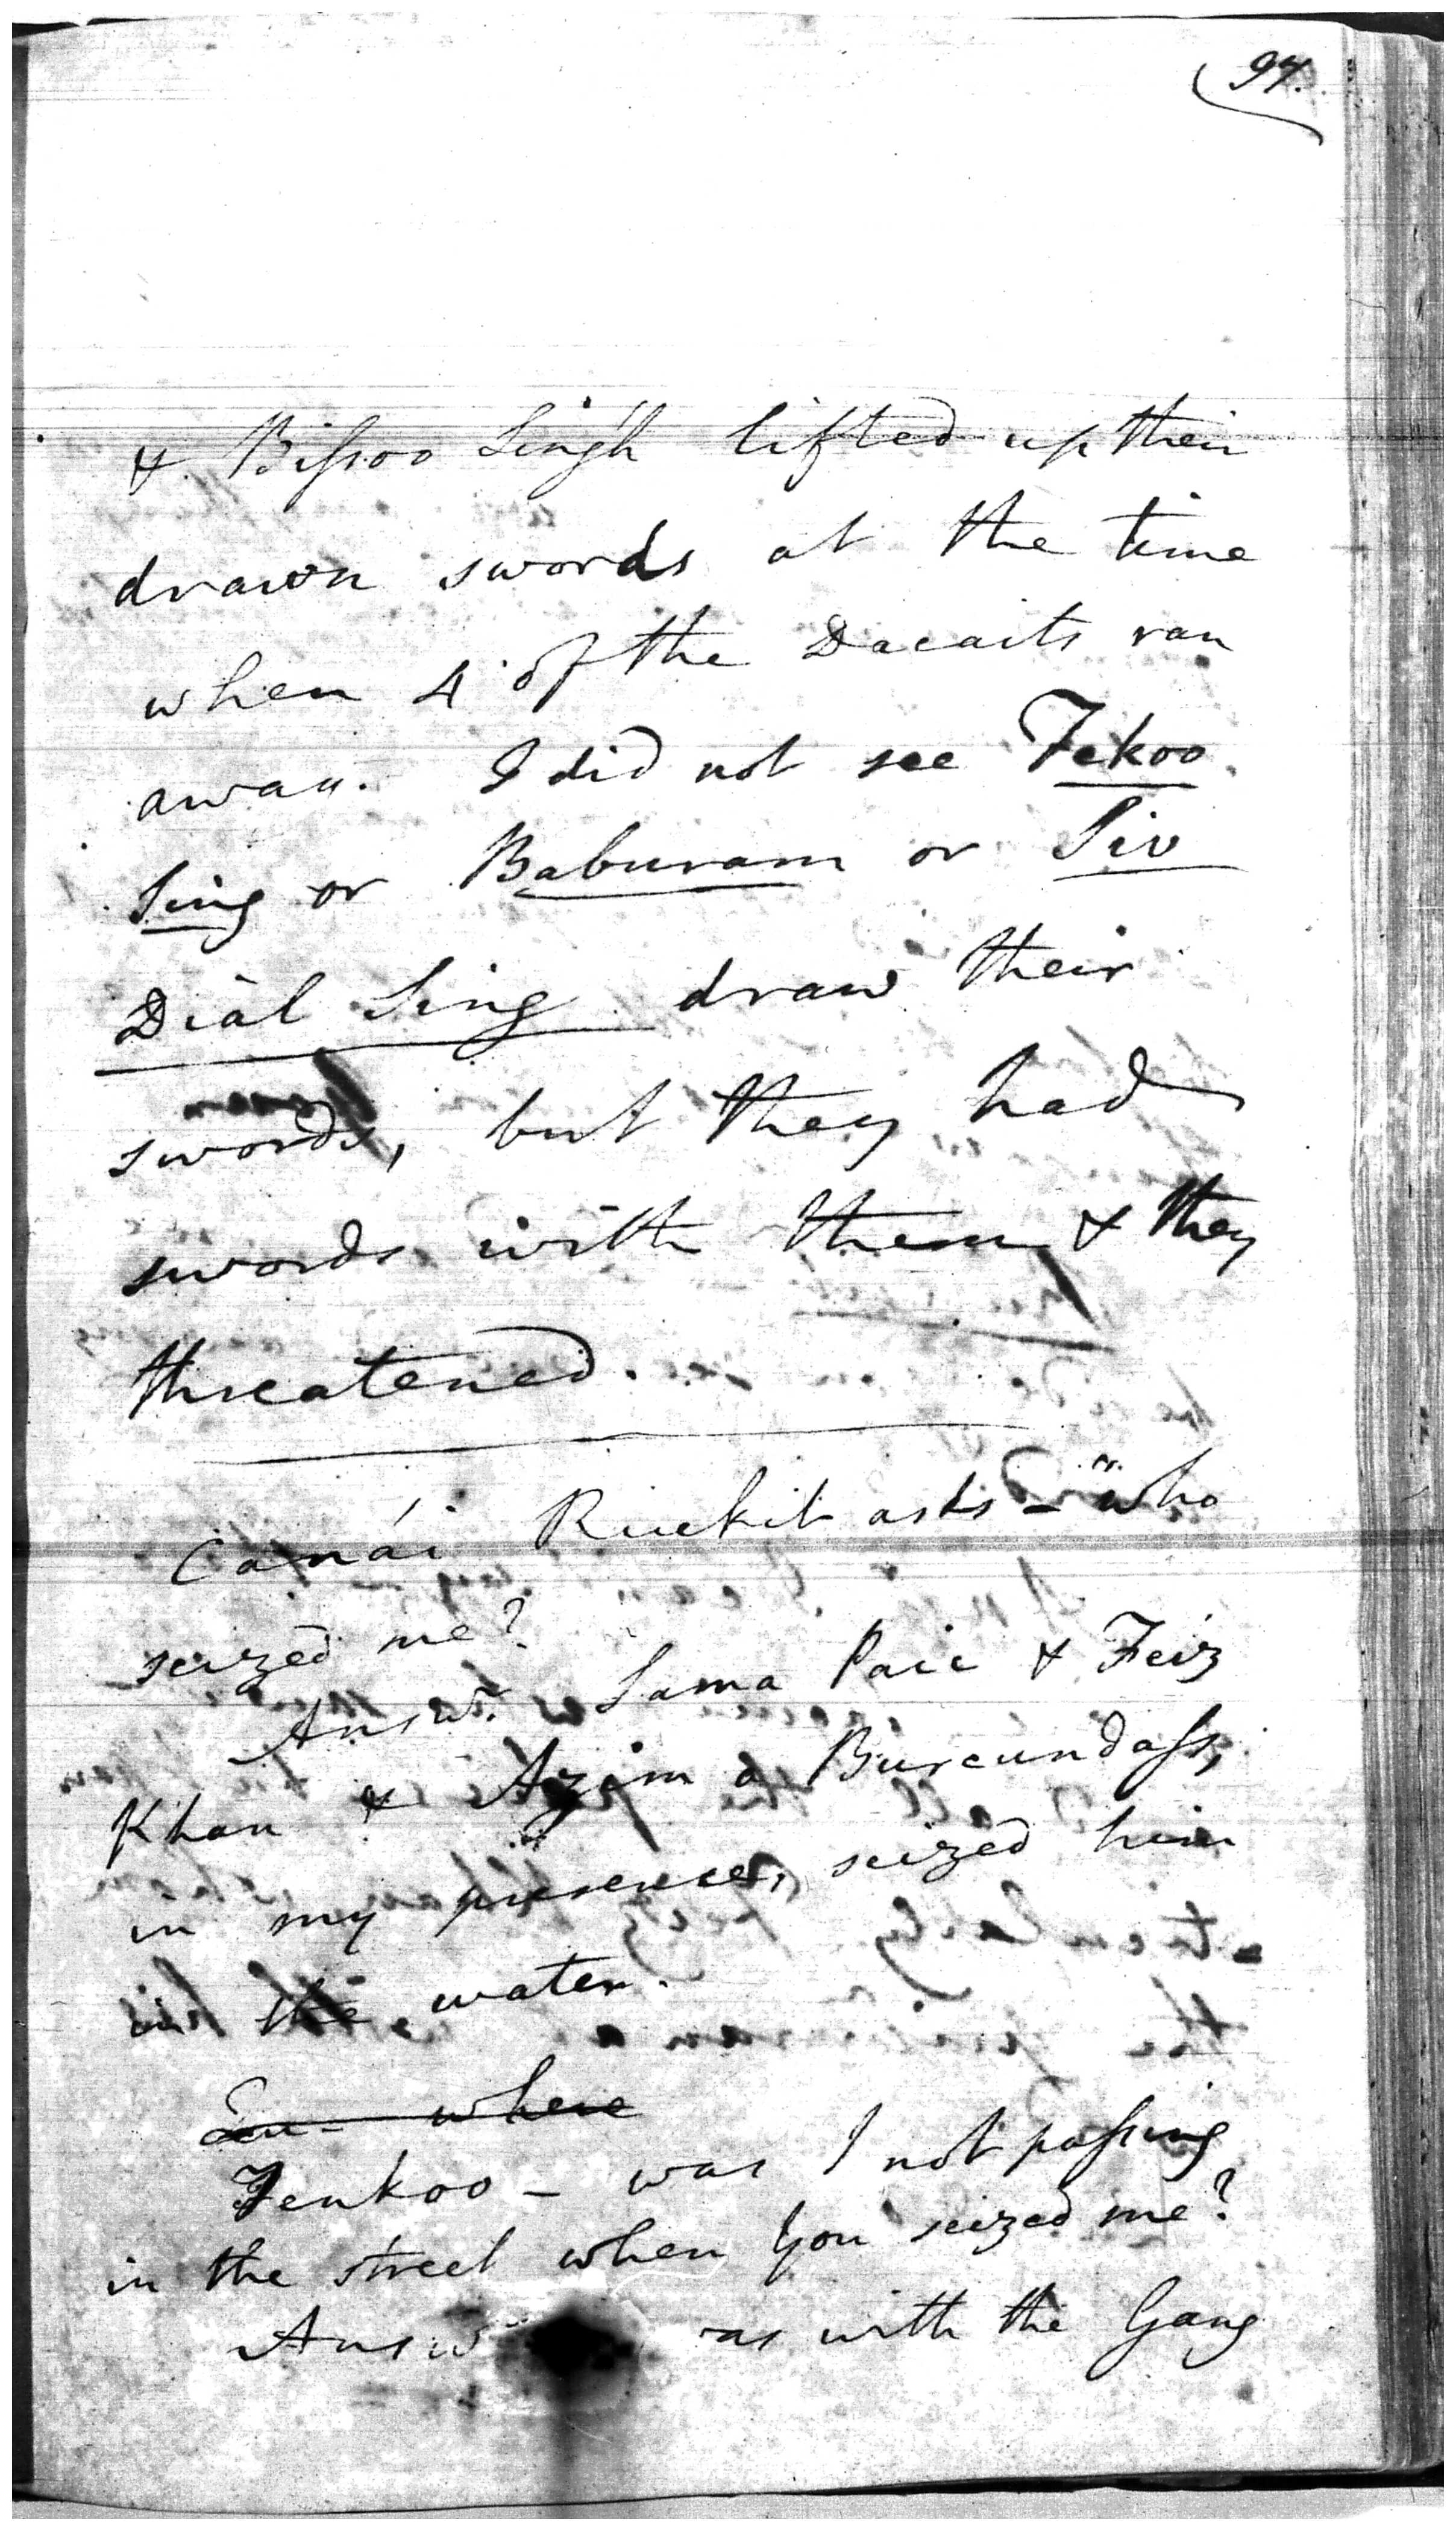 94.
& Bissoo Singh lifted up their
drawn swords at the time
when 4 of the Dacaits ran
away. I did not see Tekoo
Sing or Baburam or Siv
Diàl Sing draw their
swords, but they had
swords with them & they
threatened.
Canái Ruckit asks – who
seized me?
Answr. Sama Paic & Feiz
Khan & Azim a Burcundass,
in my presence, seized him
in the water.
where
Tenkoo – was I not passing
in the street when you seized me?
Answ as with the Gang